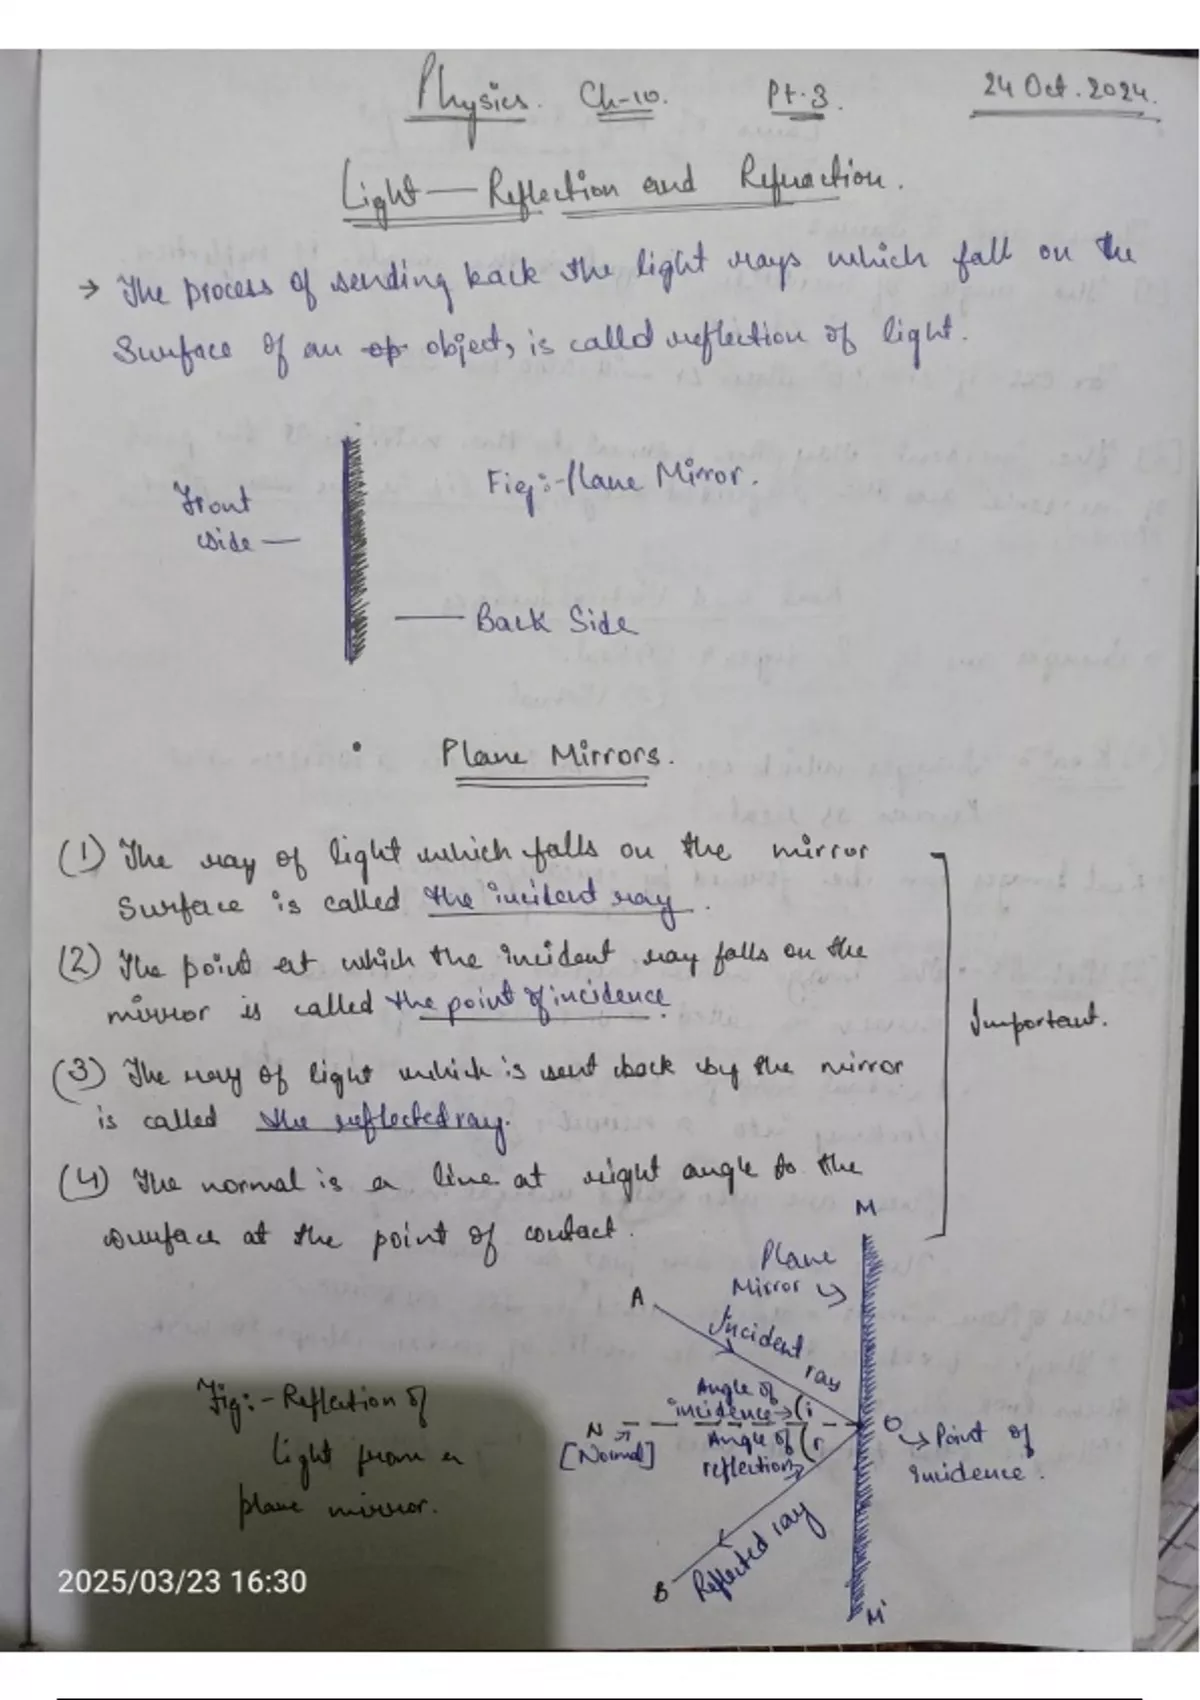 Physics. Ch-10. Pt.3. 24 Oct. 2024.
Light — Reflection and Refraction.
→ The process of sending back the light rays which fall on the
Surface of an op object, is called reflection of light.
Front
side —
Fig:- Plane Mirror.
— Back Side
• Plane Mirrors.
(1) The ray of light which falls on the mirror
Surface is called the incident ray.
(2) The point at which the incident ray falls on the
mirror is called the point of incidence.
(3) The ray of light which is sent back by the mirror
is called the reflected ray.
(4) The normal is a line at right angle to the
surface at the point of contact.
Important.
M
Plane
Mirror
A
Incident
ray
Angle of
incidence → (i
N
[Normal]
Angle of (r
reflection
O
→ Point of
incidence.
Reflected ray
B
M'
Fig:- Reflection of
light from a
plane mirror.
2025/03/23 16:30